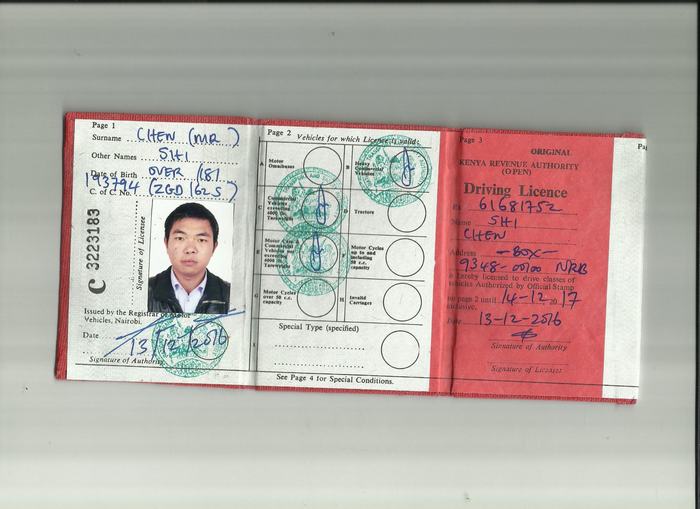 Page 1
Surname CHEN (MR)
Other Names SHI
Date of Birth OVER (18)
C. of C. No. 143794 (ZGD 1625)
C 3223183
Signature of Licensee
Issued by the Registrar of Motor
Vehicles, Nairobi.
Date 13/12/2016
Signature of Authority
Page 2
Vehicles for which Licence is valid:
A Motor Omnibuses
B Heavy Commercial Vehicles
C Commercial Vehicles exceeding 4000 lb. Tareweight
D Tractors
E Motor Cars & Commercial Vehicles not exceeding 4000 lb. Tareweight
F Motor Cycles up to and including 50 c.c. capacity
G Motor Cycles over 50 c.c. capacity
H Invalid Carriages
Special Type (specified)
See Page 4 for Special Conditions.
Page 3
ORIGINAL
KENYA REVENUE AUTHORITY
(OPEN)
Driving Licence
61681752
Name SHI
CHEN
Address -BOX-
9348-00100 NRB
is hereby licensed to drive classes of
Vehicles Authorized by Official Stamp
on page 2 until 14-12-2017
inclusive.
Date 13-12-2016
Signature of Authority
Signature of Licensee